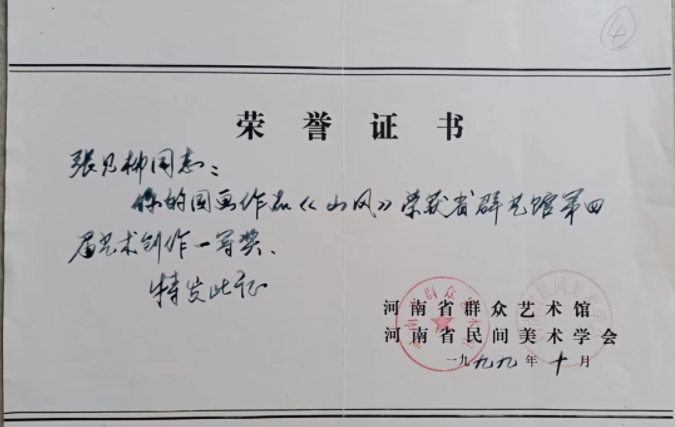 ④
荣誉证书
张乃柳同志：
你的国画作品《山风》荣获省群艺馆第四
届艺术创作一等奖、
特发此证
河南省群众艺术馆
河南省民间美术学会
一九九九年十月